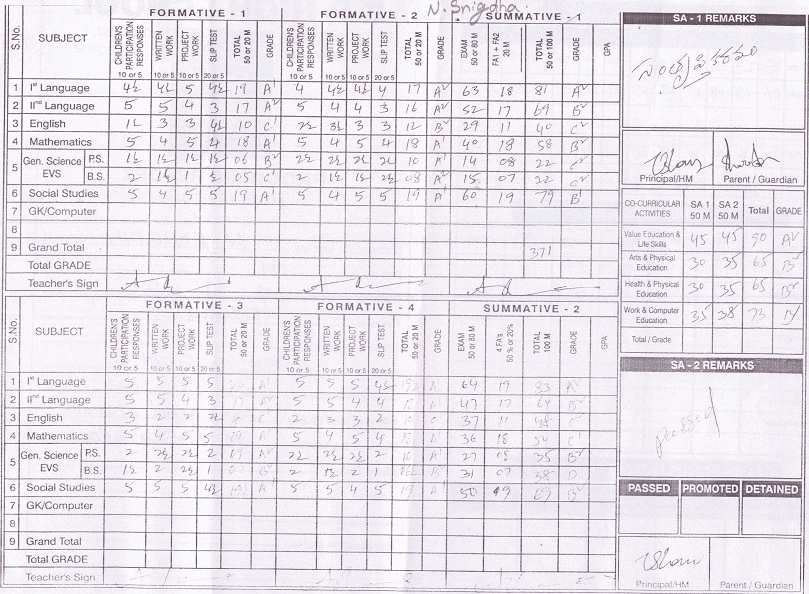 N. Snigdha.
FORMATIVE - 1 FORMATIVE - 2 SUMMATIVE - 1
S.No. SUBJECT CHILDREN'S PARTICIPATION RESPONSES WRITTEN WORK PROJECT WORK SLIP TEST TOTAL 50 or 20 M GRADE CHILDREN'S PARTICIPATION RESPONSES WRITTEN WORK PROJECT WORK SLIP TEST TOTAL 50 or 20 M GRADE EXAM 50 or 80 M FA1 + FA2 20 M TOTAL 50 or 100 M GRADE GPA
10 or 5 10 or 5 10 or 5 20 or 5 10 or 5 10 or 5 10 or 5 20 or 5
1 Ist Language 4½ 4½ 5 4½ 19 A1 4 4½ 4½ 4 17 A2 63 18 81 A2
2 IInd Language 5 5 4 3 17 A2 5 4 4 3 16 A2 52 17 69 B2
3 English 1½ 3 3 4½ 10 C1 2½ 3½ 3 3 12 B2 29 11 40 C2
4 Mathematics 5 4 5 4 18 A1 5 4 5 4 18 A1 40 18 58 B2
5 Gen. Science EVS P.S. 1½ 1½ 1½ 1½ 06 B2 2½ 2½ 2½ 2½ 10 A1 14 08 22 C2
B.S. 2 1½ 1 ½ 05 C1 2 1½ 1½ 2½ 08 A2 15 07 22 C2
6 Social Studies 5 4 5 5 19 A1 5 4 5 5 19 A1 60 19 79 B1
7 GK/Computer
8
9 Grand Total 371
Total GRADE
Teacher's Sign
FORMATIVE - 3 FORMATIVE - 4 SUMMATIVE - 2
S.No. SUBJECT CHILDREN'S PARTICIPATION RESPONSES WRITTEN WORK PROJECT WORK SLIP TEST TOTAL 50 or 20 M GRADE CHILDREN'S PARTICIPATION RESPONSES WRITTEN WORK PROJECT WORK SLIP TEST TOTAL 50 or 20 M GRADE EXAM 50 or 80 M 4 FA's 50 % or 20% TOTAL 100 M GRADE GPA
10 or 5 10 or 5 10 or 5 20 or 5 10 or 5 10 or 5 10 or 5 20 or 5
1 Ist Language 5 5 5 5 A1 5 5 5 4½ A1 64 19 83 A2
2 IInd Language 5 5 4 3 17 A2 5 5 4 4 18 A1 47 17 64 B2
3 English 3 2 2 2½ C 2 3 3 2 37 11 48 C1
4 Mathematics 5 4 5 5 A1 5 4 5 4 18 A1 36 18 54 C1
5 Gen. Science EVS P.S. 2 2½ 2½ 2 A2 2½ 2½ 2½ 2 A1 27 08 35 B2
B.S. 1½ 2 2½ 1 2 1½ 2 1 31 07 38 D
6 Social Studies 5 5 5 4½ A1 5 5 4 5 19 A1 50 19 69 B2
7 GK/Computer
8
9 Grand Total
Total GRADE
Teacher's Sign
SA - 1 REMARKS
Principal/HM Parent / Guardian
CO-CURRICULAR ACTIVITIES SA 1 50 M SA 2 50 M Total GRADE
Value Education & Life Skills 45 45 90 A2
Arts & Physical Education 30 35 65 B2
Health & Physical Education 30 35 65 B2
Work & Computer Education 35 38 73 B1
Total / Grade
SA - 2 REMARKS
passed
PASSED PROMOTED DETAINED
Principal/HM Parent / Guardian